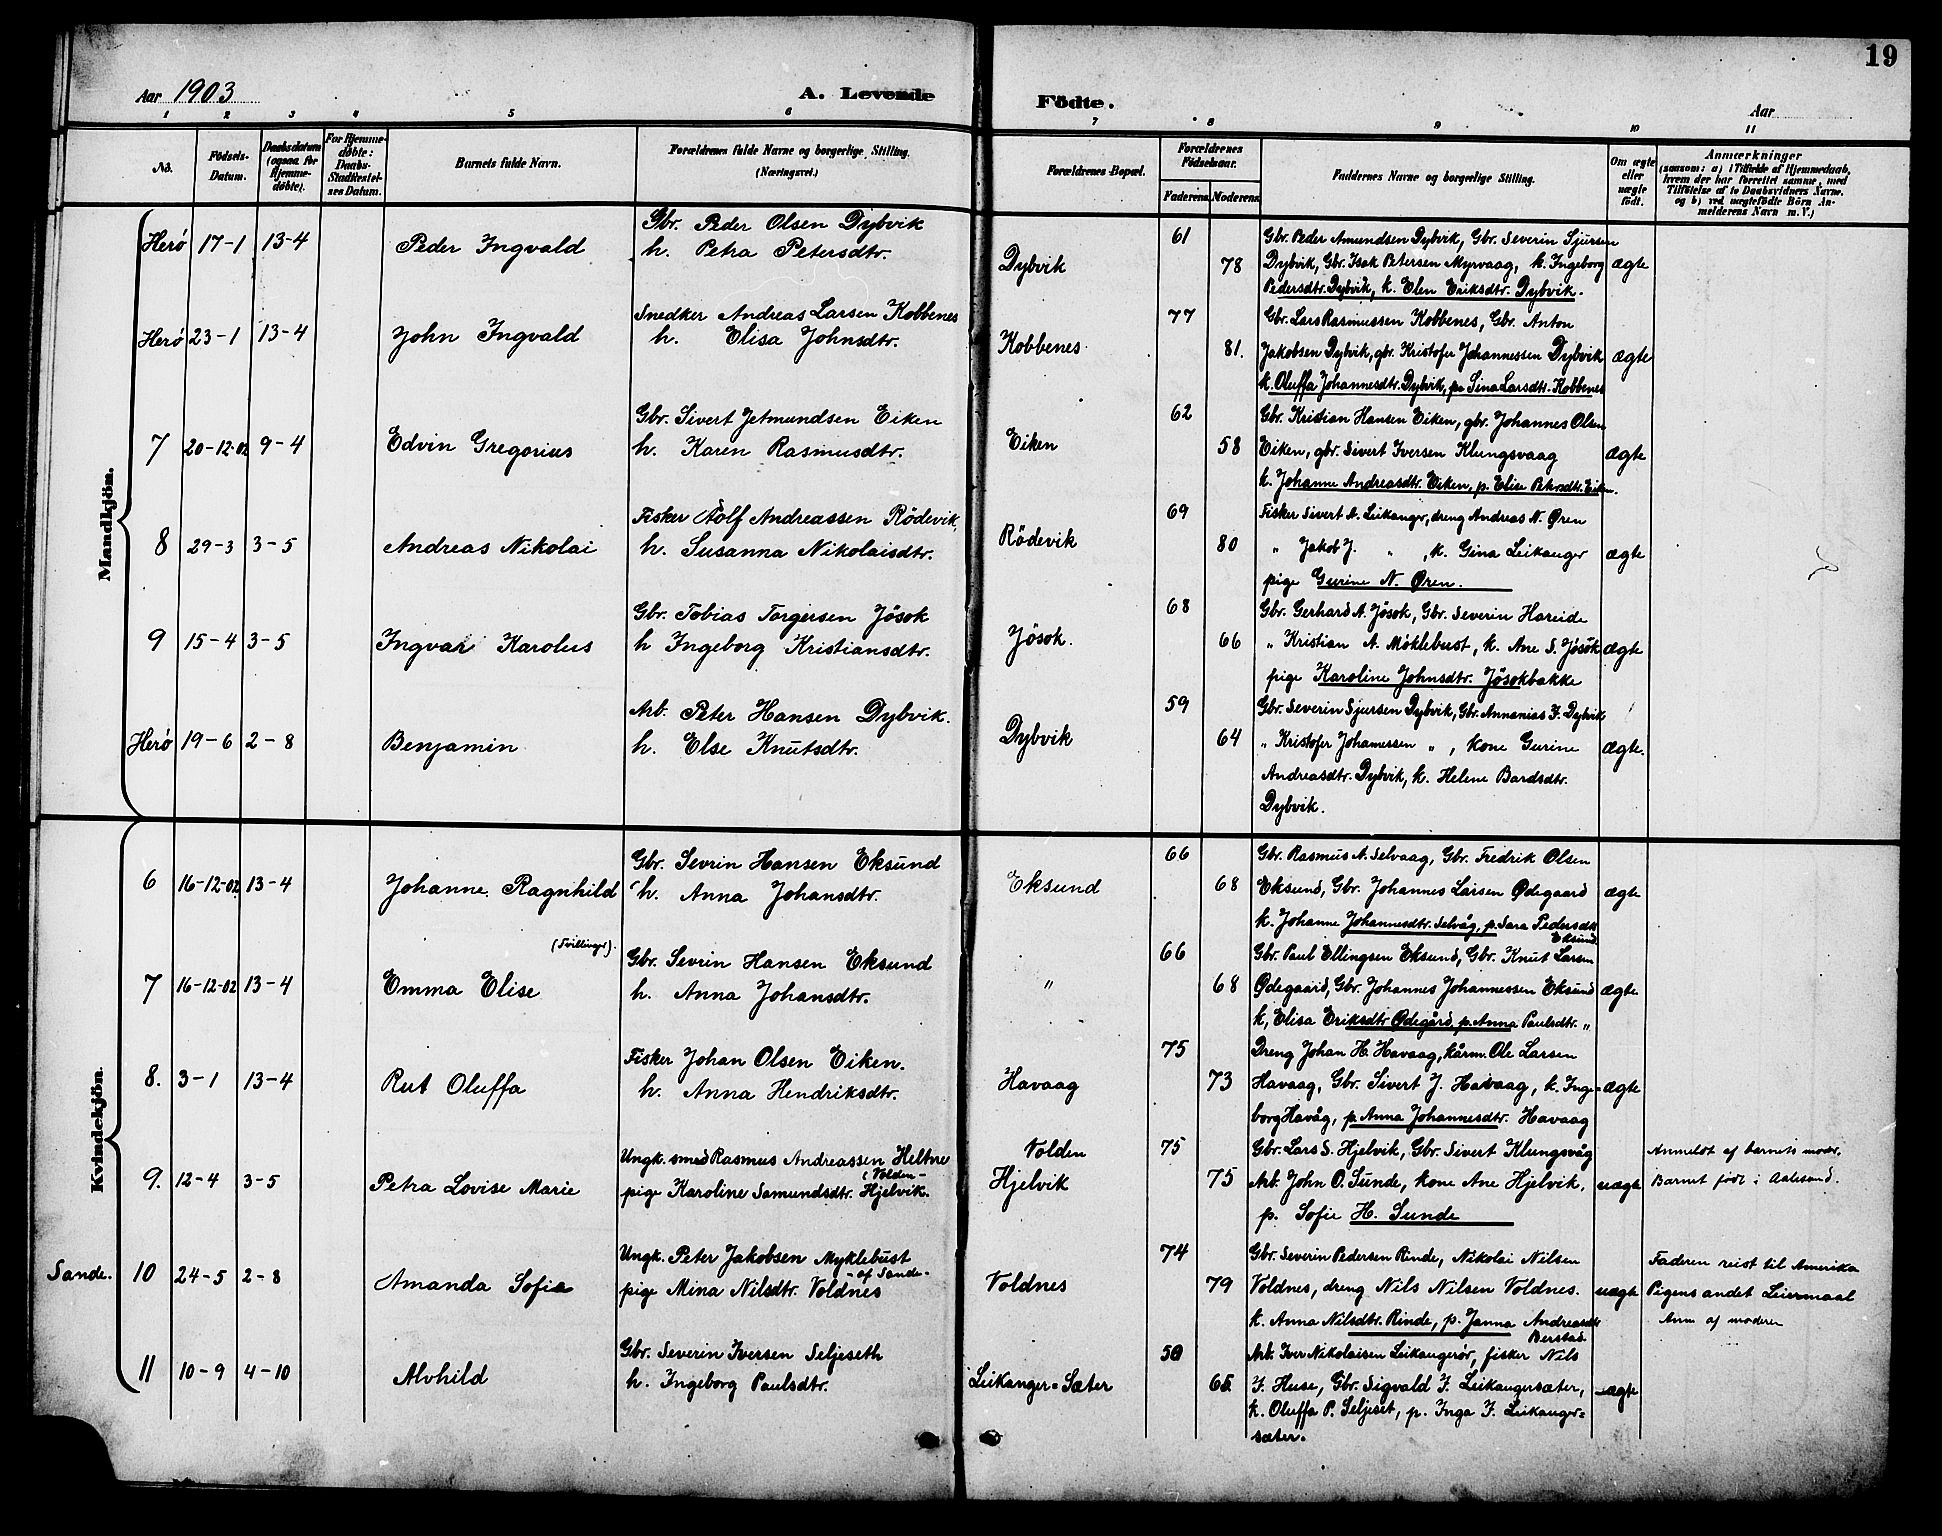 19
Aar 1903
A. Levende
Födte.
Aar
1 2 3 4 5 6 7 8 9 10 11
No.
Födsels-Datum.
Daabsdatum (ogsaa for Hjemme-døbte).
For Hjemme-døbte: Daabs-Stadfæstel-ses Datum.
Barnets fulde Navn.
Forældrenes fulde Navne og borgerlige Stilling. (Næringsvei.)
Forældrenes Bopæl.
Forældrenes Födselsaar.
Faderens. Moderens.
Faddernes Navne og borgerlige Stilling.
Om ægte eller uægte födt.
Anmærkninger
(saasom: a) i Tilfælde af Hjemmedaab,
hvem der har forrettet samme, med
Tilföielse af to Daabsvidners Navne,
og b) ved uægtefödte Börn An-
melderens Navn m. V.)
Mandkjön.
Herö 17-1 13-4 Peder Ingvald
Gbr. Peder Olsen Dybvik
h. Petra Petersdtr.
Dybvik 61 78
Gbr. Peder Amundsen Dybvik, Gbr. Severin Sjursen
Dybvik, Gbr. Isak Petersen Myrvaag, k. Ingeborg
Pedersdtr. Dybvik, k. Elen Eriksdtr. Dybvik.
ægte
Herö 23-1 13-4 John Ingvald
Snedker Andreas Larsen Kobbenes
h. Elisa Johnsdtr.
Kobbenes 77 81.
Gbr. Lars Rasmussen Kobbenes, Gbr. Anton
Jakobsen Dybvik, gbr. Kristofer Johannessen Dybvik
k. Oluffa Johannesdtr. Dybvik, p. Sina Larsdtr. Kobbenes
ægte
7 20-12-02 9-4 Edvin Gregorius
Gbr. Sivert Jetmundsen Eiken
h. Karen Rasmusdtr.
Eiken 62 58
Gbr. Kristian Hansen Eiken, gbr. Johannes Olsen
Eiken, gbr. Sivert Iversen Klungsvaag
k. Johanne Andreasdtr. Eiken, p. Elise Petersdtr. Eiken.
ægte
8 29-3 3-5 Andreas Nikolai
Fisker Rolf Andreassen Rödevik,
h. Susanna Nikolaisdtr.
Rödevik 69 80
Fisker Sivert A. Leikanger, dreng Andreas N. Øren
" Jakob J. " , k. Gina Leikanger
pige Gurine N. Øren.
ægte
9 15-4 3-5 Ingvar Karolus
Gbr. Tobias Torgersen Jösok
h Ingeborg Kristiansdtr.
Jösok. 68 66
Gbr. Gerhard A. Jösok, Gbr. Severin Hareide
" Kristian A. Møklebust, k. Ane S. Jösok
pige Karoline Johnsdtr. Jösokbakke
ægte
Herö 19-6 2-8 Benjamin
Arb. Peter Hansen Dybvik.
h. Else Knutsdtr.
Dybvik 59 64
Gbr. Severin Sjursen Dybvik, Gbr. Annanias F. Dybvik
" Kristofer Johannessen " , kone Gurine
Andreasdtr. Dybvik, k. Helene Bardsdtr.
Dybvik.
ægte.
Kvindekjön.
6 16-12-02 13-4 Johanne Ragnhild
Gbr. Sevrin Hansen Eksund
h. Anna Johansdtr.
Eksund 66 68
Gbr. Rasmus A. Selvaag, Gbr. Fredrik Olsen
Eksund, Gbr. Johannes Larsen Ødegaard
k. Johanne Johannesdtr. Selvåg, p. Sara Pedersdtr
Eksund
ægte
(Tvillinger).
7 16-12-02 13-4 Emma Elise
Gbr. Sevrin Hansen Eksund
h. Anna Johansdtr.
" 66 68
Gbr. Paul Ellingsen Eksund, Gbr. Knut Larsen
Ødegaard, Gbr. Johannes Johannessen Eksund
k, Elisa Eriksdtr Ødegård, p. Anna Paulsdtr. "
ægte
8. 3-1 13-4 Rut Oluffa
Fisker Johan Olsen Eiken.
h. Anna Hendriksdtr.
Havaag 75 73
Dreng Johan H. Havaag, kårm. Ole Larsen
Havaag, Gbr. Sivert J. Havaag, k. Inge-
borg Havåg, p. Anna Johannesdtr. Havaag
ægte
9. 12-4 3-5 Petra Lovise Marie
Ungk. smed Rasmus Andreassen Heltne
(Volden-
pige Karoline Samundsdtr. Hjelvik.
Volden
Hjelvik 75 75
Gbr. Lars S. Hjelvik, Gbr. Sivert Klungsvåg
Arb. John O. Sunde, kone Ane Hjelvik,
p. Sofie H. Sunde
uægte
Anmeldt af barnets moder,
Barnet födt i Aalesund.
Sande. 10 24-5 2-8 Amanda Sofie
Ungk. Peter Jakobsen Myklebust
-af Sande-
pige Mina Nilsdtr. Voldnes
Voldnes 74 79
Gbr. Severin Pedersen Rinde, Nikolai Nilsen
Voldnes, dreng Nils Nilsen Voldnes.
k. Anna Nilsdtr. Rinde, p. Janna Andreasdtr
Berstad.
uægte
Faderen reist til Amerika
Pigens andet Leiermaal
Anm af moderen
11 10-9 4-10 Alvhild
Gbr. Severin Iversen Seljeseth
h. Ingeborg Paulsdtr.
Leikanger=Sæter 50 65
Arb. Iver Nikolaisen Leikangerør, fisker Nils
J. Huse, Gbr. Sigvald I. Leikangersæter,
k. Oluffa P. Seljeset, p. Inga I. Leikanger=
sæter.
ægte